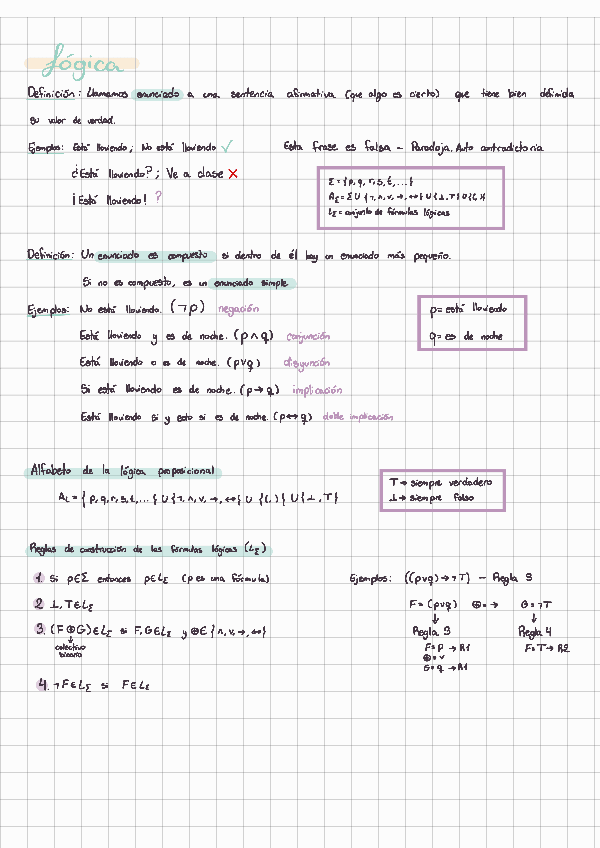 Lógica
Definición: Llamamos enunciado a una sentencia afirmativa (que algo es cierto) que tiene bien definida
su valor de verdad.
Ejemplos: Está lloviendo; No está lloviendo ✓
Esta frase es falsa - Paradoja. Auto contradictoria
¿Está lloviendo?; Ve a clase ✗
¡Está lloviendo! ?
Σ = {p, q, r, s, t, ...}
A_Σ = Σ ∪ {¬, ∧, ∨, →, ↔} ∪ {⊥, ⊤} ∪ {(, )}
L_Σ = conjunto de fórmulas lógicas
Definición: Un enunciado es compuesto si dentro de él hay un enunciado más pequeño.
Si no es compuesto, es un enunciado simple
Ejemplos: No está lloviendo. (¬p) negación
Está lloviendo y es de noche. (p ∧ q) conjunción
Está lloviendo o es de noche. (p ∨ q) disyunción
Si está lloviendo es de noche. (p → q) implicación
Está lloviendo si y solo si es de noche. (p ↔ q) doble implicación
p = está lloviendo
q = es de noche
Alfabeto de la lógica proposicional
A_L = {p, q, r, s, t, ...} ∪ {¬, ∧, ∨, →, ↔} ∪ {(, )} ∪ {⊥, ⊤}
⊤ → siempre verdadero
⊥ → siempre falso
Reglas de construcción de las fórmulas lógicas (L_Σ)
1. Si p ∈ Σ entonces p ∈ L_Σ (p es una fórmula)
2. ⊥, ⊤ ∈ L_Σ
3. (F ⊕ G) ∈ L_Σ si F, G ∈ L_Σ y ⊕ ∈ {∧, ∨, →, ↔}
↓
binario
4. ¬F ∈ L_Σ si F ∈ L_Σ
Ejemplos: ((p ∨ q) → ¬⊤) - Regla 3
F = (p ∨ q) ⊕ = → G = ¬⊤
↓ ↓
Regla 3 Regla 4
F = p → R1 F = ⊤ → R2
⊕ = ∨
G = q → R1